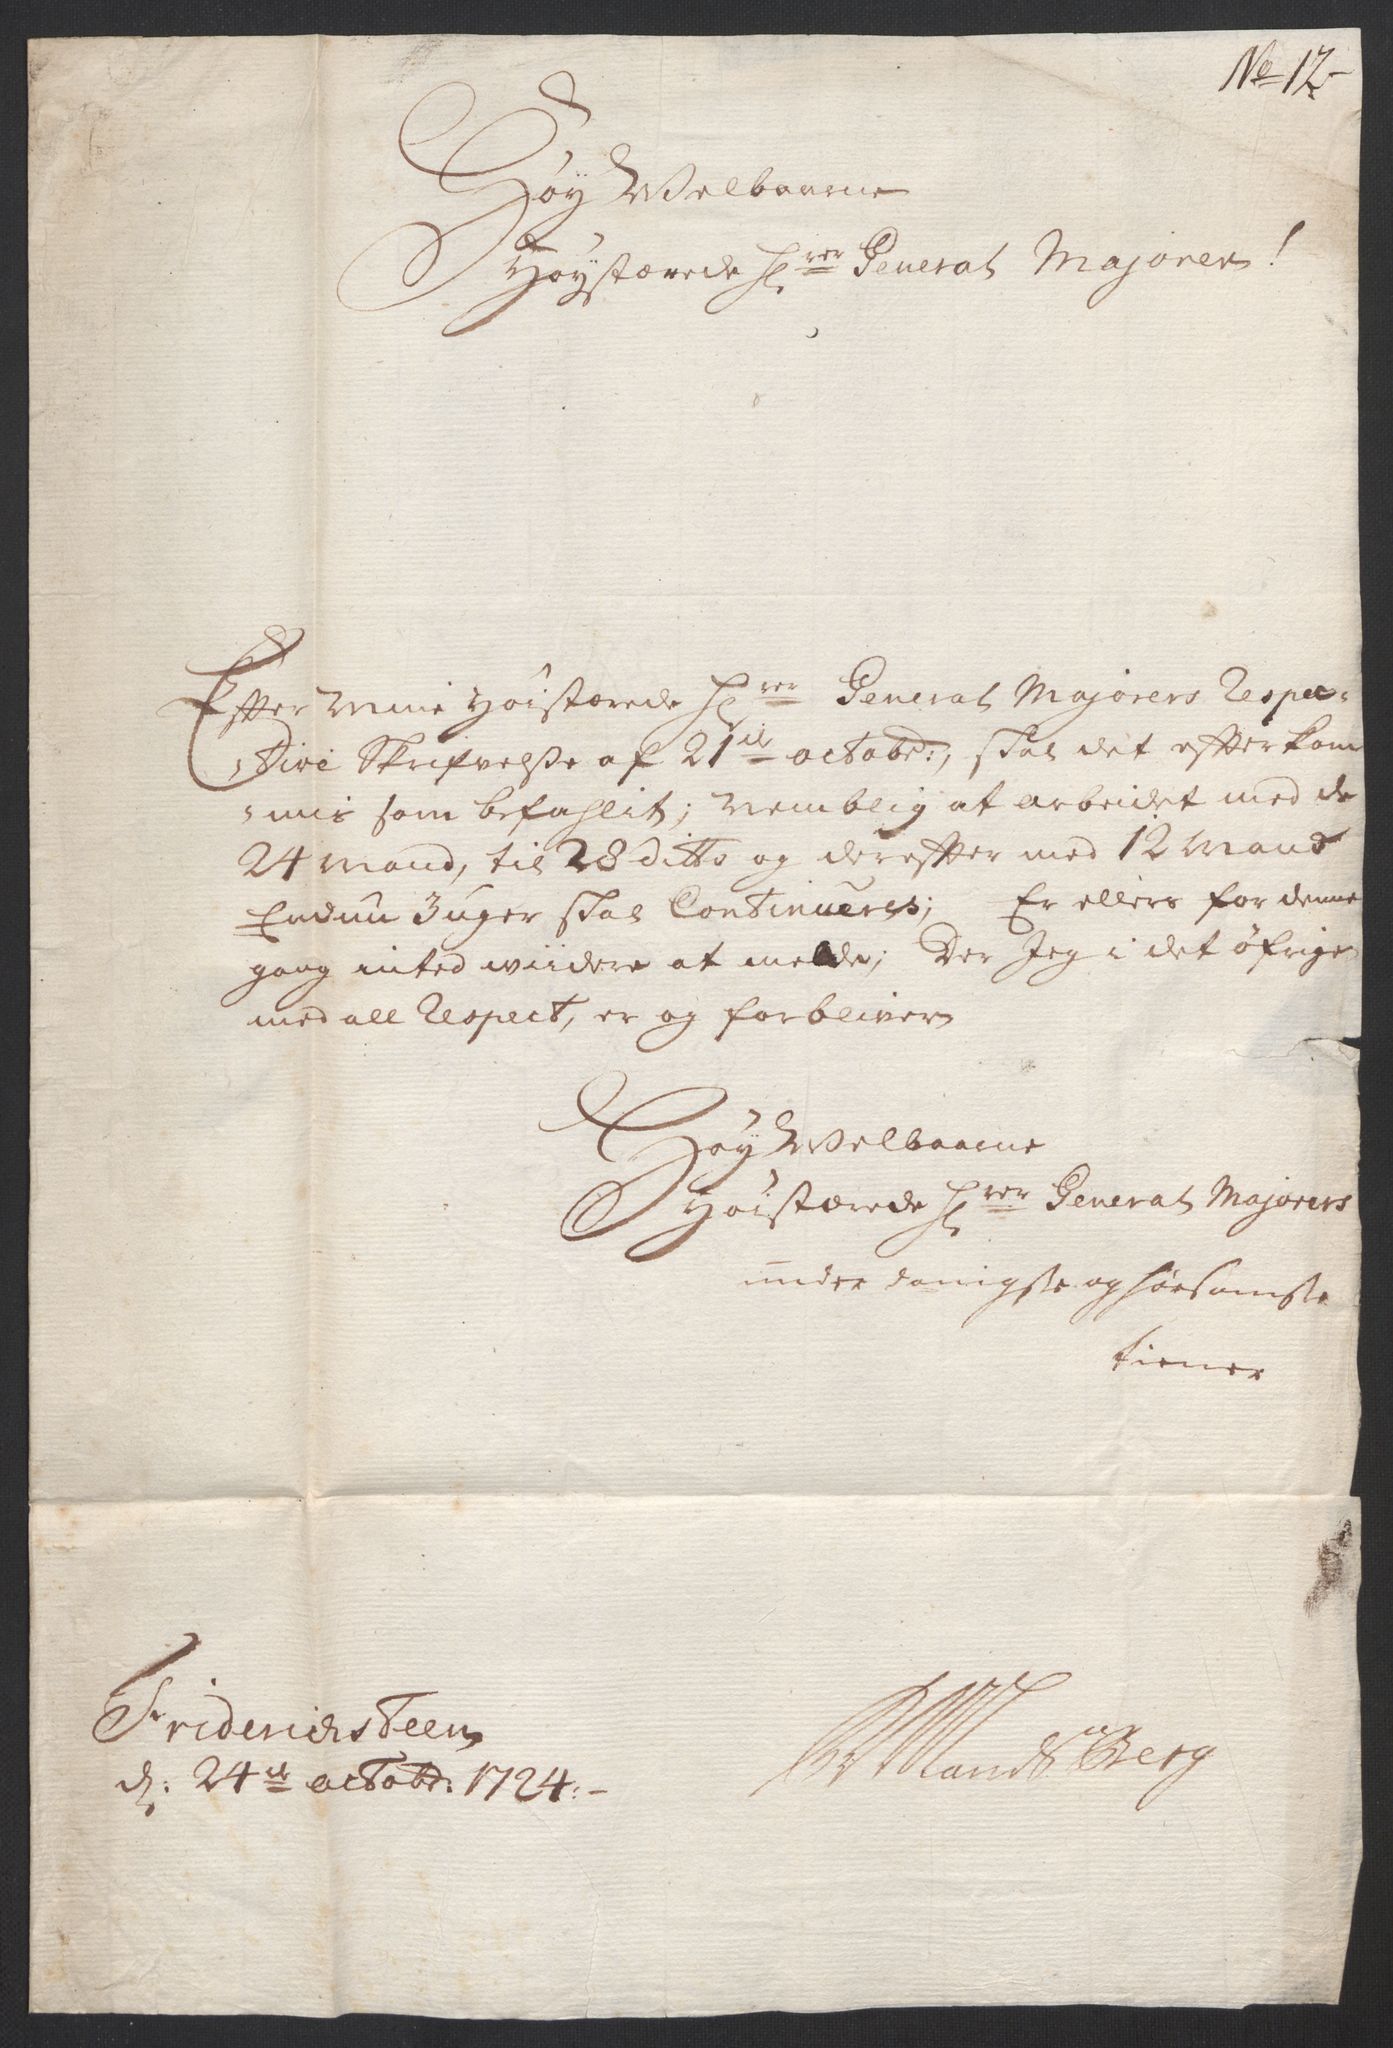 No 12
Høy Welbaarne
Høystærede Hrrer General Majorer!
Effter Mine Høistærede Hrrer General Majorers Respec-
tive Skrifvelsse af 21de octobr:, skal det efterkom
mis som befahlit; Nemblig at arbeidet med de
24 Mand, til 28 ditto og derefter med 12 Mand
Endnu 3 uger skal Continueris; Er ellers for denne
gang inted widere at melde; Der Jeg i det øfrige
med all Respect, er og forbliver
Høy Welbaarne
Høistærede Hrrer General Majorers
under danigste og hørsamste
tiener
Fridericksteen
d: 24de octobr: 1724:-
LandsBerg